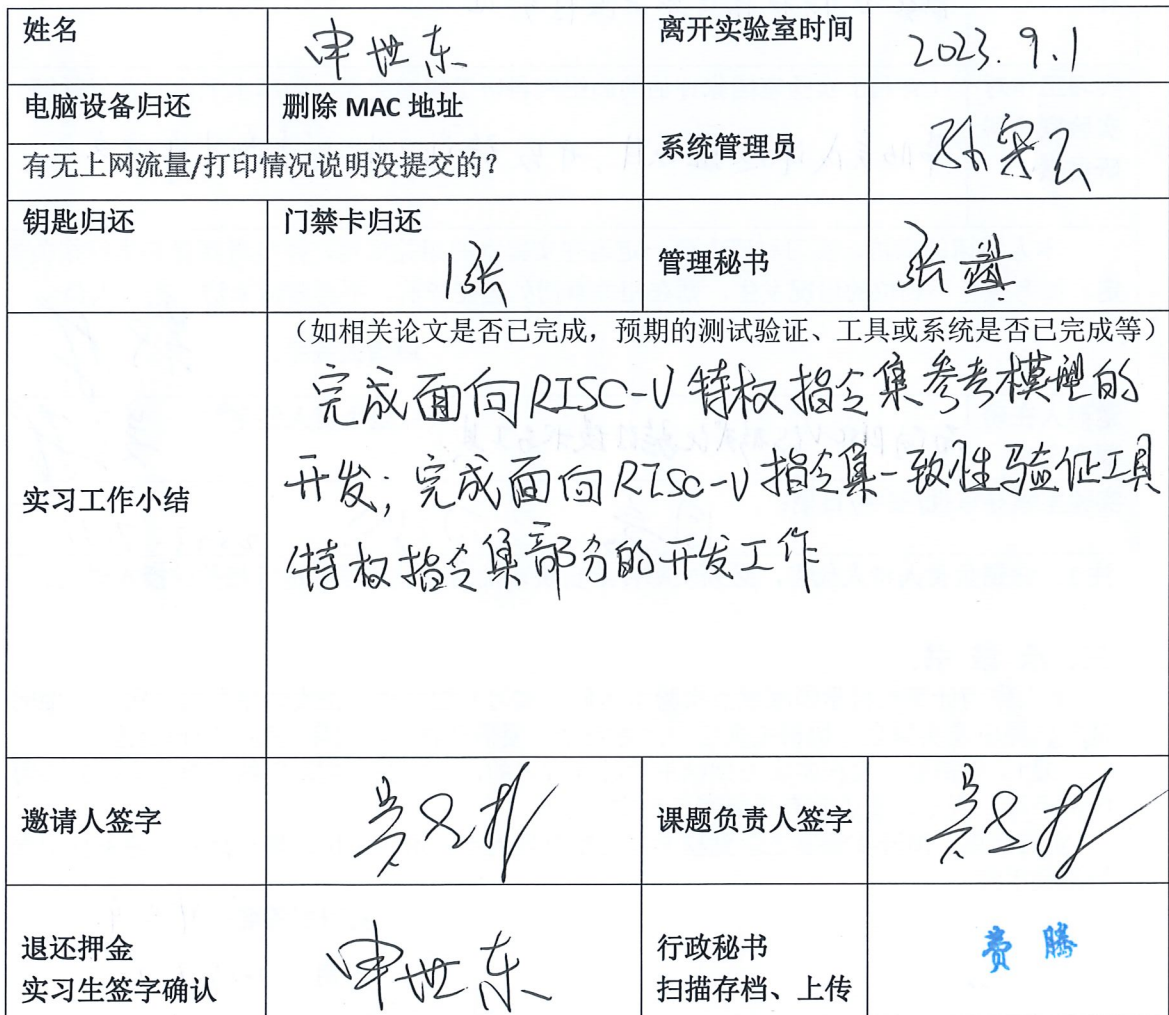 姓名 申世东 离开实验室时间 2023.9.1
电脑设备归还 删除 MAC 地址
系统管理员
有无上网流量/打印情况说明没提交的？
钥匙归还 门禁卡归还
1张 管理秘书 张
（如相关论文是否已完成，预期的测试验证、工具或系统是否已完成等）
完成面向RISC-V特权指令集参考模型的
实习工作小结 开发；完成面向RISC-V指令集一致性验证工具
特权指令集部分的开发工作
邀请人签字 课题负责人签字
退还押金 行政秘书 费腾
实习生签字确认 申世东 扫描存档、上传